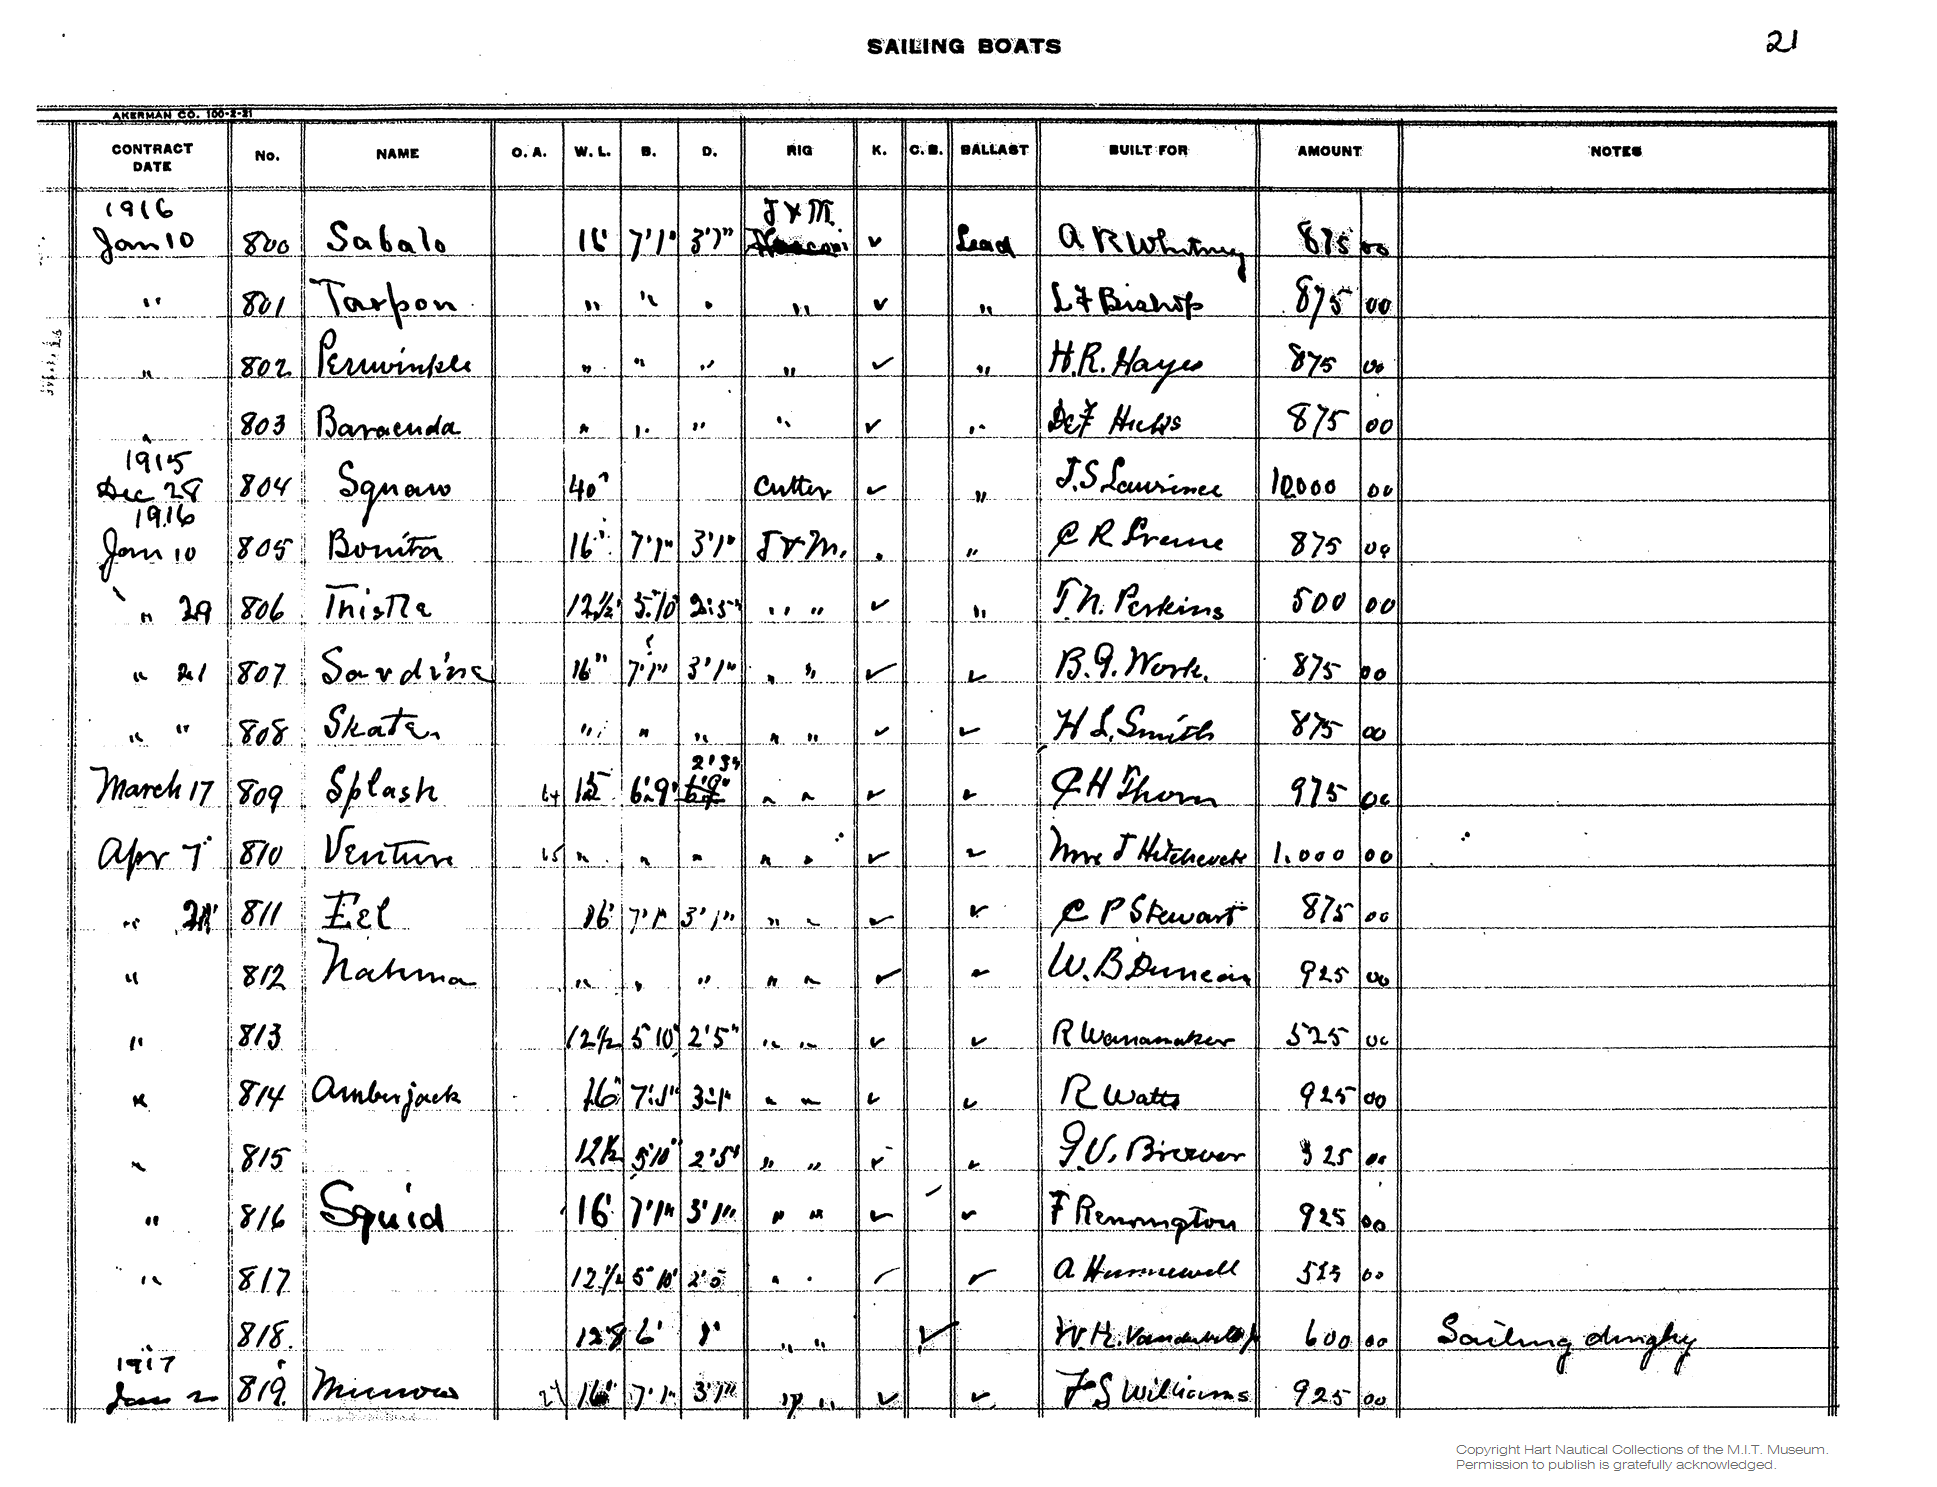 SAILING BOATS 21
AKERMAN CO. 100-2-21
CONTRACT DATE No. NAME O. A. W. L. B. D. RIG K. C. B. BALLAST BUILT FOR AMOUNT NOTES
1916 J & M.
Jan 10 800 Sabalo 16' 7'1" 3'1" ✓ Lead A R Whitney 875 00
" 801 Tarpon " " " " ✓ " L F Bishop 875 00
" 802 Periwinkle " " " " ✓ " H. R. Hayes 875 00
" 803 Baracuda " " " " ✓ " DeF Hicks 875 00
1915
Dec 28 804 Squaw 40' Cutter ✓ " J. S Lawrence 10000 00
1916
Jan 10 805 Bonita 16' 7'1" 3'1" J & M. " C R 875 00
" 29 806 Thistle 12½' 5'10" 2'5" " " ✓ " T. N. Perkins 500 00
" 21 807 Sardine 16" 7'1" 3'1" " " ✓ ✓ B. G. Work. 875 00
" " 808 Skate " " " " " ✓ ✓ H L. Smith 875 00
2'3"
March 17 809 Splash 15 6'9" " " ✓ ✓ C H Thorn 975 00
Apr 7 810 Venture " " " " " ✓ ✓ Mrs T Hitchcock 1.000 00
" 811 Eel 16' 7'1" 3'1" " " ✓ ✓ C P Stewart 875 00
" 812 Nahma " " " " " ✓ ✓ W. B Duncan 925 00
" 813 12½ 5'10" 2'5" " " ✓ ✓ R Wanamaker 525 00
" 814 Amberjack 16' 7'1" 3'1" " " ✓ ✓ R Watts 925 00
" 815 12½ 5'10" 2'5" " " ✓ ✓ G. V. Brower 525 00
" 816 Squid 16' 7'1" 3'1" " " ✓ ✓ F Remington 925 00
" 817 12½ 5'10' 2'5 " " ✓ ✓ A Hunnewell 00
" 818. 12'8 6' " " ✓ W. K. Vanderbilt Jr 600 00 Sailing dinghy
1917
Jan 2 819. Minnow 16' 7'1" 3'1" " " ✓ ✓ F S Williams 925 00
Copyright Hart Nautical Collections of the M.I.T. Museum.
Permission to publish is gratefully acknowledged.